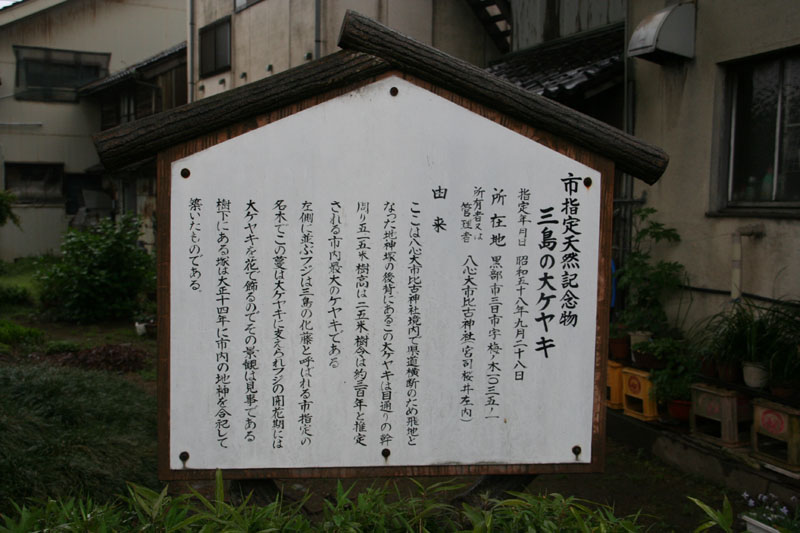 市指定天然記念物
三島の大ケヤキ
指定年月日 昭和五十八年九月二十八日
所在地 黒部市三日市字桜ノ木一〇三五ノ一
所有者又は
管理者 八心大市比古神社(宮司桜井左内)
由来
ここは八心大市比古神社境内で県道横断のため飛地と
なった地神塚の後背にあるこの大ケヤキは目通りの幹
周り五・二五米樹高は二五米樹令は約三百年と推定
される市内最大のケヤキである
左側に並ぶフジは三島の化藤と呼ばれる市指定の
名木でこの蔓は大ケヤキに支えられフジの開花期には
大ケヤキを花で飾るのでその景観は見事である
樹下にある塚は大正十四年に市内の地神を合祀して
築いたものである。